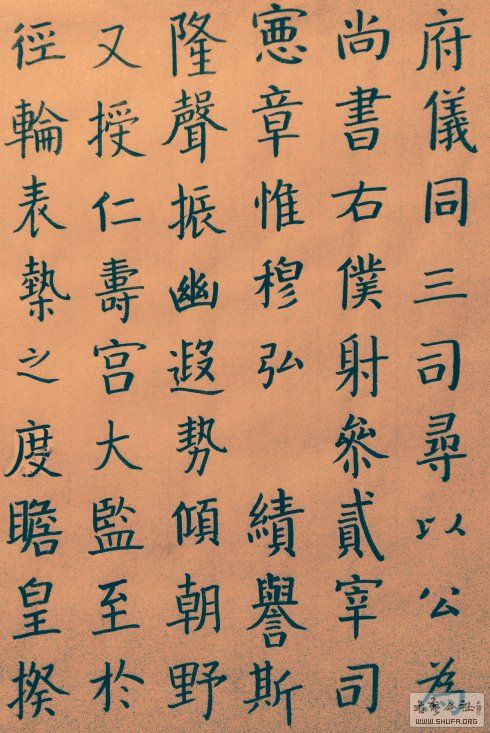 府儀同三司尋以公為
尚書右僕射叅貳宰司
憲章惟穆弘績譽斯
隆聲振幽遐勢傾朝野
又授仁壽宮大監至於
徑輪表槷之度瞻皇揆
WWW.SHUFA.ORG